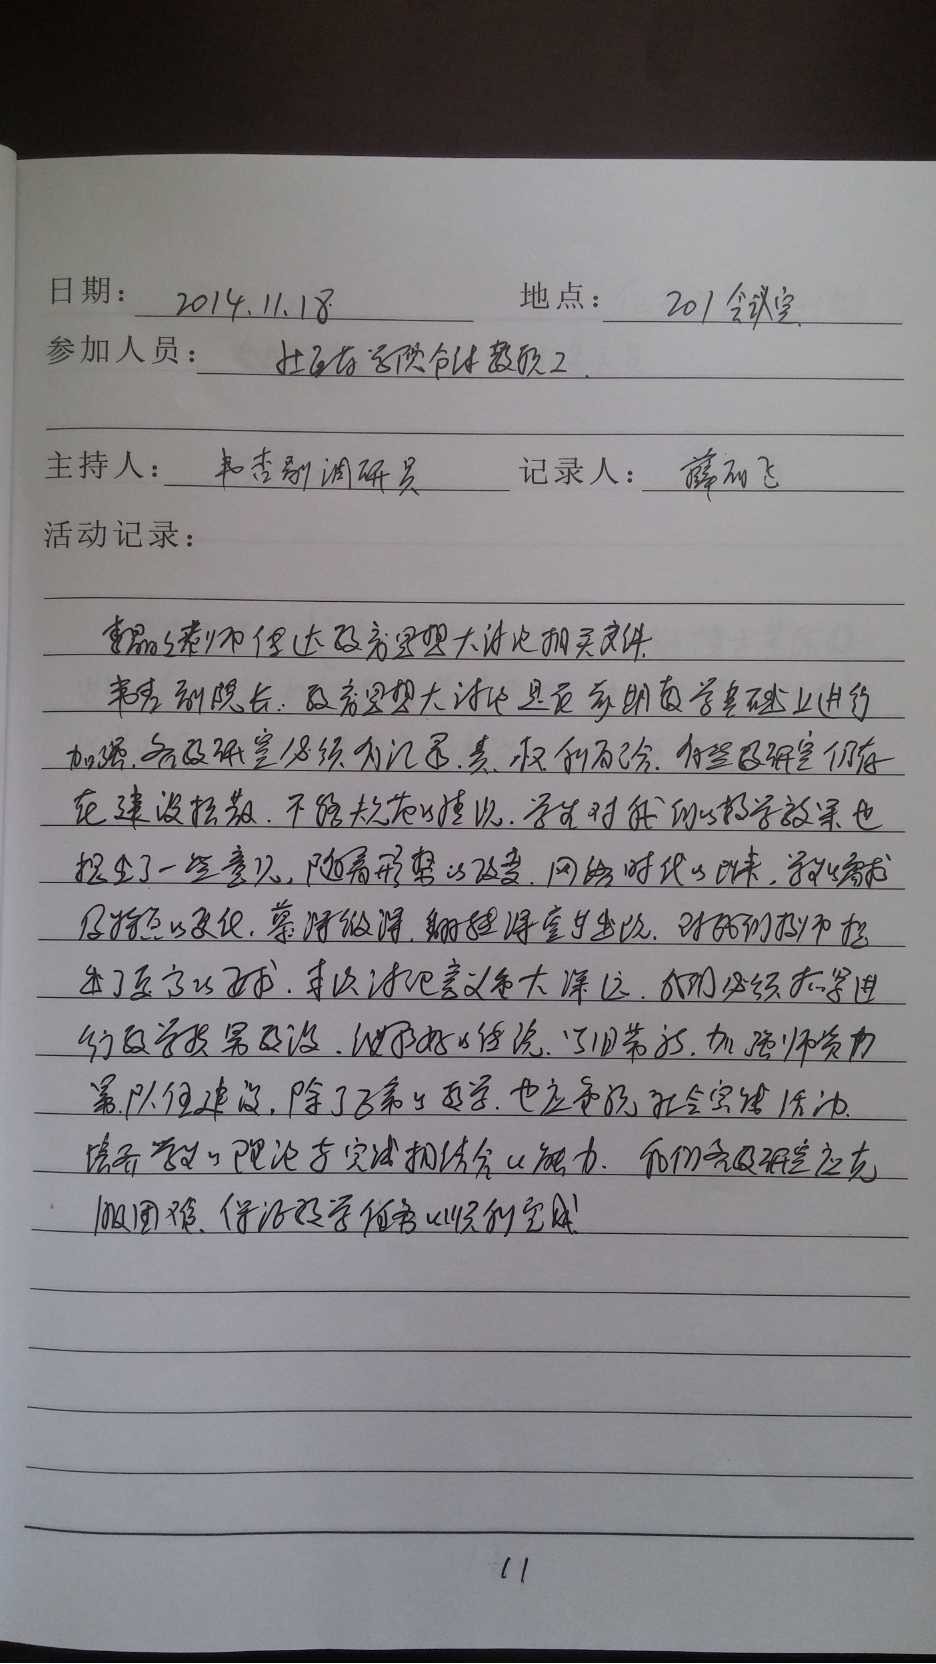 日期： 2014.11.18. 地点： 201会议室.
参加人员： 学院全体教职工.
主持人： 韦杏副调研员 记录人： 薛 飞
活动记录：
老师传达教育思想大讨论相关文件.
韦杏副院长：教育思想大讨论是在前期教学基础上进行
加强.各教研室必须有记录. 有些教研室仍存
在建设松散.不够规范的情况.学生对我们的教学效果也
提出了一些意见,随着形势的改变.网络时代的到来,学生的需求
及特点的变化.慕课微课.翻转课堂等出现.对我们教师提
出了更高的要求.本次讨论意义重大深远.我们必须有序进
行教学效果 .以旧带新.加强师资力
量.队伍建设.除了正常的教学.也应重视社会实践活动.
培养学生的理论与实践相结合的能力. 我们各教研室应克
服困难.保证教学任务的顺利完成
11